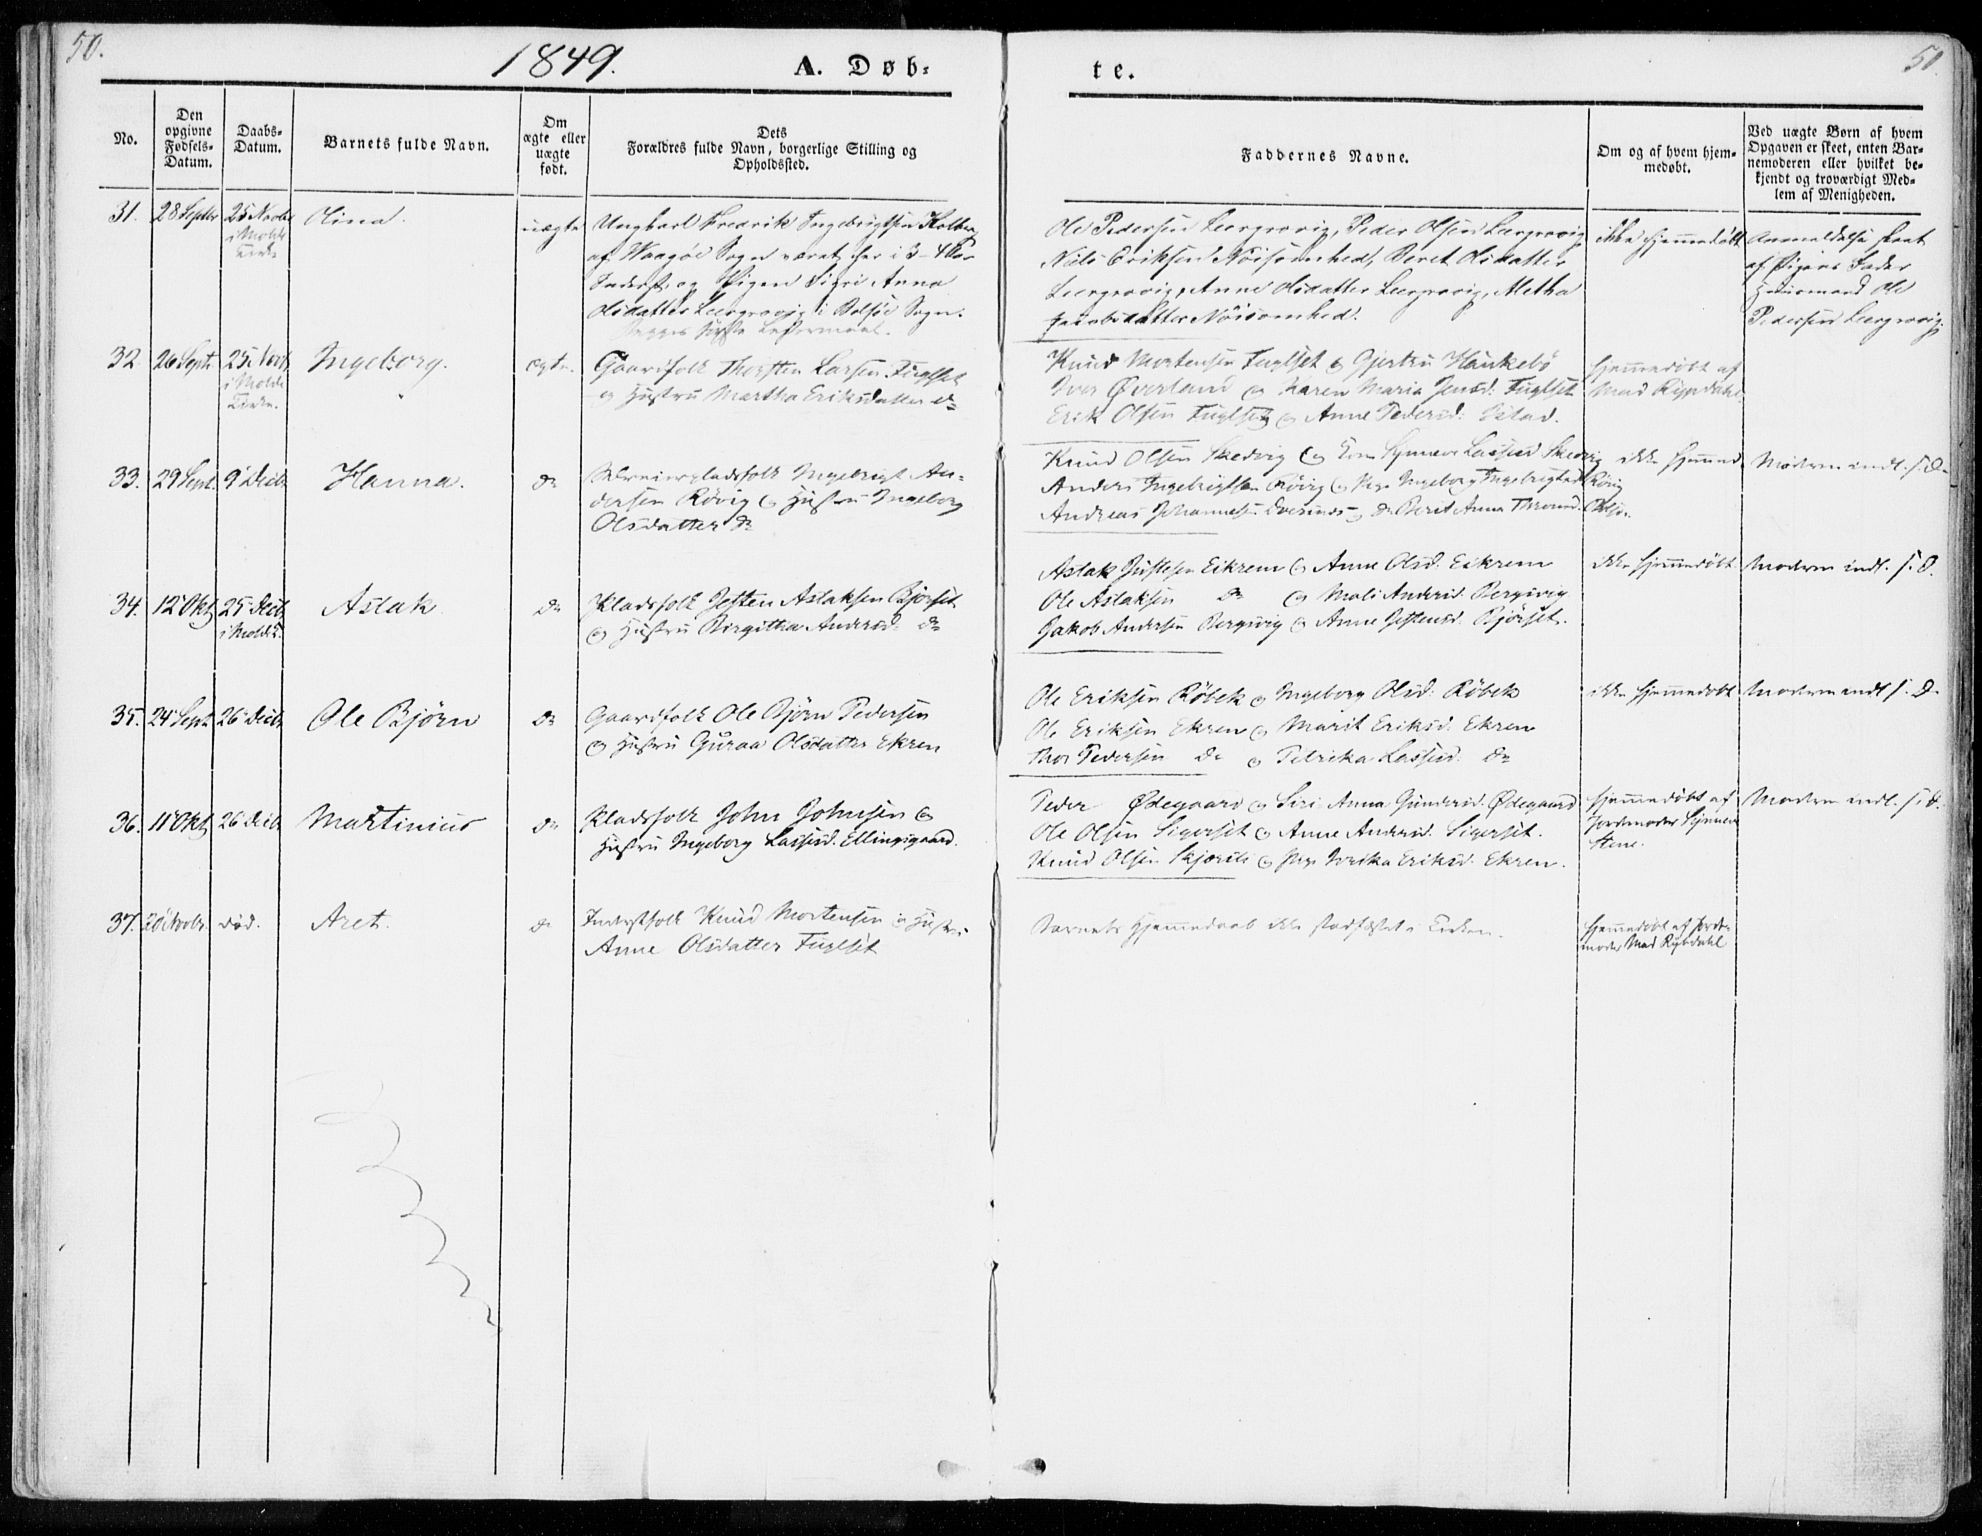 50.
1849.
A. Døb-
te.
50.
No.
Den opgivne Fødsels-Datum.
Daabs-Datum.
Barnets fulde Navn.
Om ægte eller uægte født.
Dets
Forældres fulde Navn, borgerlige Stilling og
Opholdssted.
Faddernes Navne.
Om og af hvem hjem-
medøbt.
Ved uægte Børn af hvem
Opgaven er skeet, enten Bar-
nemoderen eller hvilket be-
kjendt og troværdigt Med-
lem af Menigheden.
31. 28 Septbr 25 Novbr i Molde Kirke Olina. uægte
Ungkarl Fredrik Ingebrigtsen
af Sogn været her i 3-4
og Pigen Siri Anna
Olsdatter Leergrovig i Bolsøe Sogn.
Ole Pedersen Leergrovig, Peder Olsen Leergrovig
Niels Eriksen Nöisomhed, Beret Olsdatter
Leergrovig, Anne Olsdatter Leergrovig, Metha
Jacobsdatter Nöisomhed.
ikke hjemmedøbt
Anmeldelse skeet
af Pigens Fader
Huusmand Ole
Pedersen Leergrovig.
32. 26 Sept. 25 Novbr i Molde Kirke. Ingeborg. ægte.
Gaardfolk Thorsten Larsen Fuglset
og Hustru Martha Eriksdatter do
Knud Mortensen Fuglset og Gjertru Haukebö
Iver Øverland og Karen Maria Jensd: Fuglset
Erik Olsen Fuglset og Anne Pedersd: Istad.
hjemmedøbt af
Mad Rypdahl.
33. 29 Sept. 9 Decbr Hanna. do
Ingebrigt An-
dersen Rövig og Hustru Ingeborg
Olsdatter do
Knud Olsen Skedvig og Synneve Lassesd Skedvig
Anders Ingebrigtsen Rövig og Pige Ingeborg Ingebrigtsd Rövig
Andreas Johannesen og Berit Anna
ikke hjemmed.
Moderen indl. s. d.
34. 12 Okt 25 Decbr i Molde K. Aslak do
Pladsfolk Jetsten Aslaksen Bjørset
og Hustru Birgitha Andersd: do
Aslak Eikrem og Anne Olsd. Eikrem
Ole Aslaksen do og Mali Andersd. Bergsvig
Jakob Andersen Bergsvig og Anne Jetstensd. Bjørset.
ikke hjemmedøbt
Moderen indl. s. d.
35. 24 Sept. 26 Decbr Ole Bjørn do
Gaardfolk Ole Bjørn Pedersen
og Hustru Guraa Olsdatter Ekren
Ole Eriksen Röbek og Ingeborg Olsd: Röbek
Ole Eriksen Ekren og Marit Eriksd. Ekren
Thor Pedersen do og Petrika Lassesd: do
ikke hjemmedøbt
Moderen indl s. d.
36. 11 Okt 26 Decbr Martinius do
Pladsfolk John Johnsen og
Hustru Ingeborg Lassesd. Ellingsgaard.
Peder Ødegaard og Siri Anna Gundersd. Ødegaard
Ole Olsen Sigerset og Anne Andersd. Sigerset.
Knud Olsen og Pige Eriksd. Ekren.
hjemmedøbt af
Jordmoder Synneve
Stene.
Moderen indl. s. d.
37. 20 Novbr. död. Aret. do
Inderstfolk Knud Mortensen og Hustru
Anne Olsdatter Fuglset
Barnets Hjemmedaab ikke stadfæstet i Kirken.
hjemmedøbt af Jord-
moder Mad Rypdahl